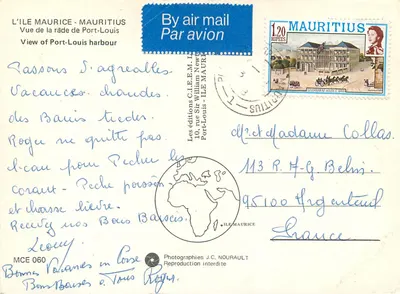 L'ILE MAURICE - MAURITIUS
Vue de la râde de Port-Louis
View of Port-Louis harbour
By air mail
Par avion
1.20
RUPEES
MAURITIUS
Passons d'agréables
Vacances, chaudes
des Bains tiedes
Roger ne quitte pas
l'eau pour Pecher le
corail - Peche poisson
et chasse lièvre.
Recevez nos Bons Baisers
Bonnes Vacances en Corse
Bons Baisers a Tous Roger
Les éditions C.I.E.E.M.
10, rue Sir William New
Port-Louis - ILE MAURI
Mr et Madame Collas
113 R. A-G. Belin
95100 Argenteuil
France
ILE MAURICE
MCE 060
Photographies J.C. NOURAULT
Reproduction interdite